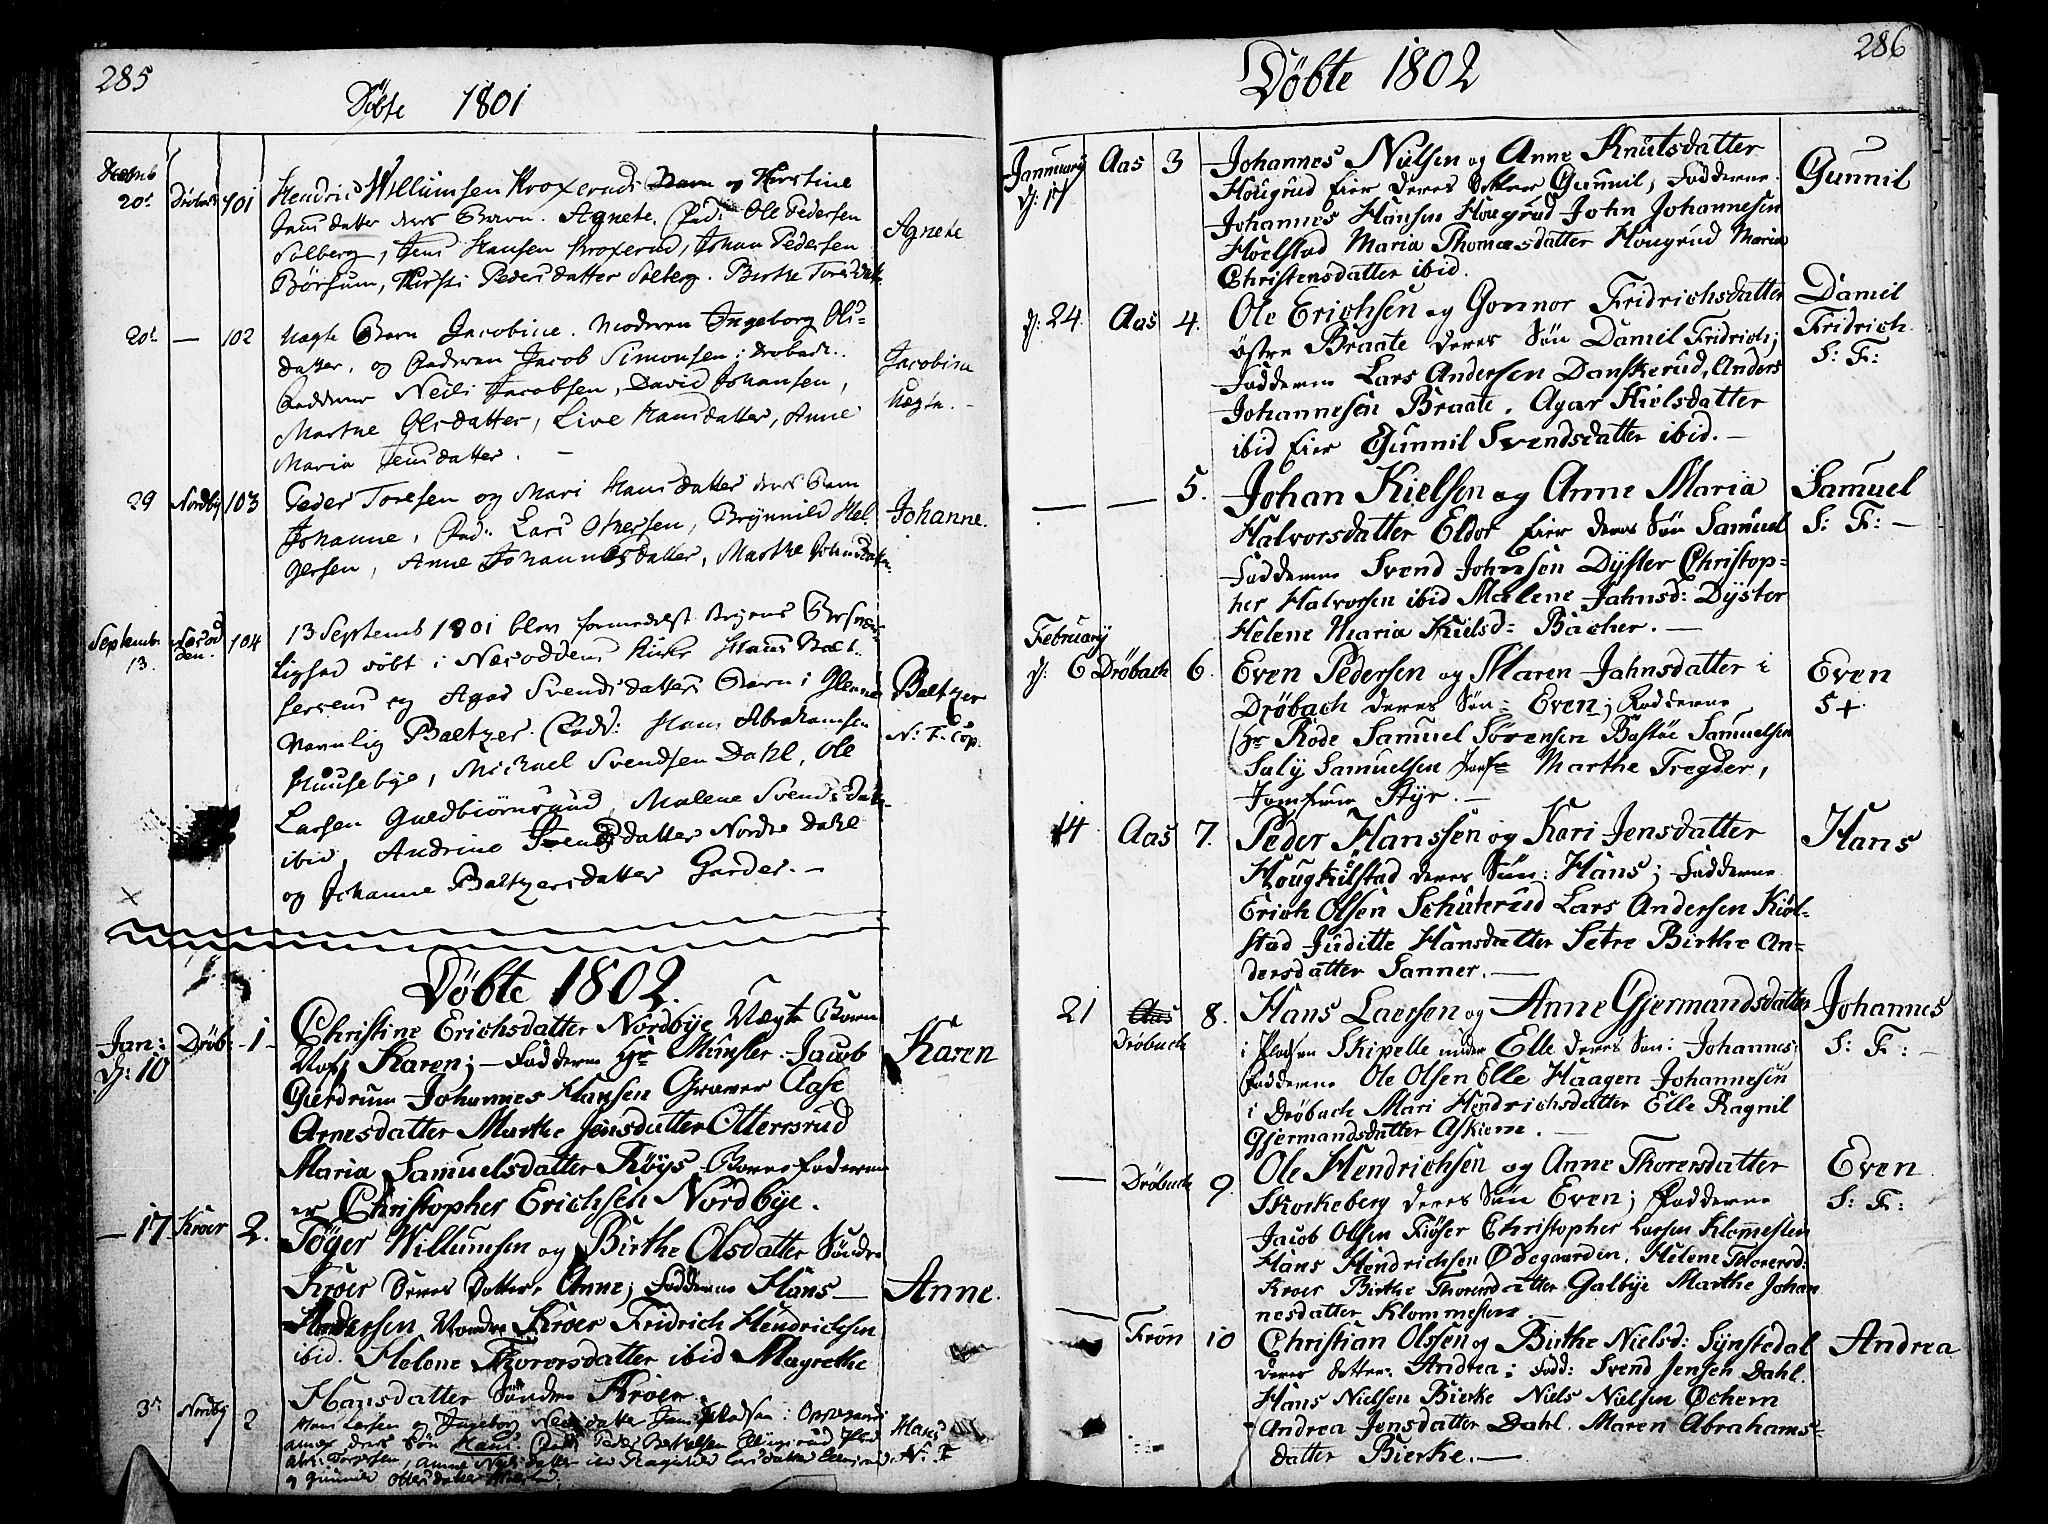 285
Döbte 1801
Decmb
20de Dröbach 101 Hendric Willumsen Kroxerud Barn og Kirstine
Jansdatter deres Barn. Agnete. Fad: Ole Pedersen
Solberg, Jens Hansen Kroxerud, Johan Pedersen
Börsum, Kirsti Pedersdatter Solberg. Birthe Toresdatt.
Agnete
20de — 102 Uægte Barn Jacobine. Moderen Ingeborg Ols-
datter, og Faderen Jacob Simonsen i Drobach.
Fadderne Neils Jacobsen, David Johansen,
Marthe Olsdatter, Live Hansdatter, Anne
Maria Jensdatter. —
Jacobine
Uægte. —
29 Nordby 103 Peder Toresen og Mari Hansdatter deres Barn
Johanne, Fad: Lars Olversen, Brynnild Hel-
gersen, Anne Johannesdatter, Marthe Johnsdatter.
Johanne.
Septembr
13. Nesod
den. 104 13 Septemb 1801 blev formedelst Vejens
lighed döbt i Nesoddens Kirke Hans Balt-
sersens og Agar Svendsdatters Barn i Glenne
Navnlig Baltzer. Fadd: Hans Abrahamsen
Huusebye, Michael Svendsen Dahl, Ole
Larsen Guldbiörnsrud, Malene Svendsdatter
ibid, Andrine Svendsdatter Nordre Dahl
og Johanne Baltzersdatter Garder. —
Baltzer
N: F. Cop.
Döbte 1802.
Jan:
D: 10 Dröb: 1 Christine Erichsdatter Nordbye Uægte Barn
Karen; — Fadderne Hr Münster Jacob
Gierdrum Johannes Hansen Graver Aase
Arnesdatter Marthe Jensdatter Otterrsrud
Maria Samuelsdatter Röys Barnefaderen
er Christopher Erichsen Nordbye.
Karen
— 17 Kroer 2. Töger Willumsen og Birthe Olsdatter Söndre
Kroer Deres Datter, Anne; Fadderne Hans —
Andersen Nordre Kroer Fridrich Hendrichsen
ibid. Helene Thorersdatter ibid Magrethe
Hansdatter Söndre Kroer.
Anne.
3de Nordby 2 Hans Larsen og Ingeborg Neilsdatter
deres Sön Hans. Fadd: Peder
og Gunnild Olbersdatter
Hans
N: F
286
Döbte 1802
Januarij
D: 17 Aas 3 Johannes Nielsen og Anne Knutsdatter
Hougrud Eier deres Datter Gunnil; Fadderne
Johannes Hansen Hougrud John Johannesen
Hoelstad Maria Thomasdatter Hougrud Maria
Christensdatter ibid.
Gunnil
D: 24. Aas 4. Ole Erichsen og Gonnor Fridrichsdatter
östre Braate deres Sön Daniel Fridrich;
Fadderne Lars Andersen Danskerud, Anders
Johannesen Braate. Agar Kielsdatter
ibid Eier Gunnil Svendsdatter ibid. —
Daniel
Fridrich.
S: F:
— — 5. Johan Kielsen og Anne Maria
Halvorsdatter Eldor Eier deres Sön Samuel
Fadderne Svend Johnsen Dyster Christop-
her Halvorsen ibid Malene Jahnsd: Dyster
Helene Maria Kielsd: Bacher. —
Samuel
S: F: —
Februarij
D: 6 Dröbach 6. Even Pedersen og Maren Jahnsdatter i
Dröbach deres Sön: Even; Fadderne
Hr Rode Samuel Sörensen Bastöe Samuelsen
Saly Samuelsen Jomfr Marthe Tregder,
Jomfrue Styr. —
Even
S +
14 Aas 7. Peder Hanssen og Kari Jensdatter
Hougkilstad deres Sön: Hans; Fadderne
Erich Olsen Schuhrud Lars Andersen Kiöl-
stad Juditte Hansdatter Setre Birthe An-
dersdatter Sanner. —
Hans
21 Aas
Dröbach 8. Hans Larsen og Anne Gjermandsdatter
i Pladsen Skipelle under Elle deres Sön: Johannes;
Fadderne Ole Olsen Elle Haagen Johannesen
i Dröbach Mari Hendrichsdatter Elle Ragnil
Gjermandsdatter Askiem. —
Johannes
S: F: —
— Dröbach 9. Ole Hendrichsen og Anne Thorersdatter
Skorkeberg deres Sön Even; Fadderne
Jacob Olsen Fiöser Christopher Larsen Klommesten
Hans Hendrichsen Ödegaarden. Helene Thorersd:
Kroer Birthe Thorersdatter Galbye Marthe Johan
nesdatter Klommesten.
Even.
S: F:
— Frön 10 Christian Olssen og Birthe Nielsd: Synstedal
deres datter Andrea; Fadd: Svend Jensen Dahl.
Hans Nielsen Bierke Niels Nielsen Öchern
Andrea Jensdatter Dahl. Maren Abrahams-
datter Bierke. —
Andrea